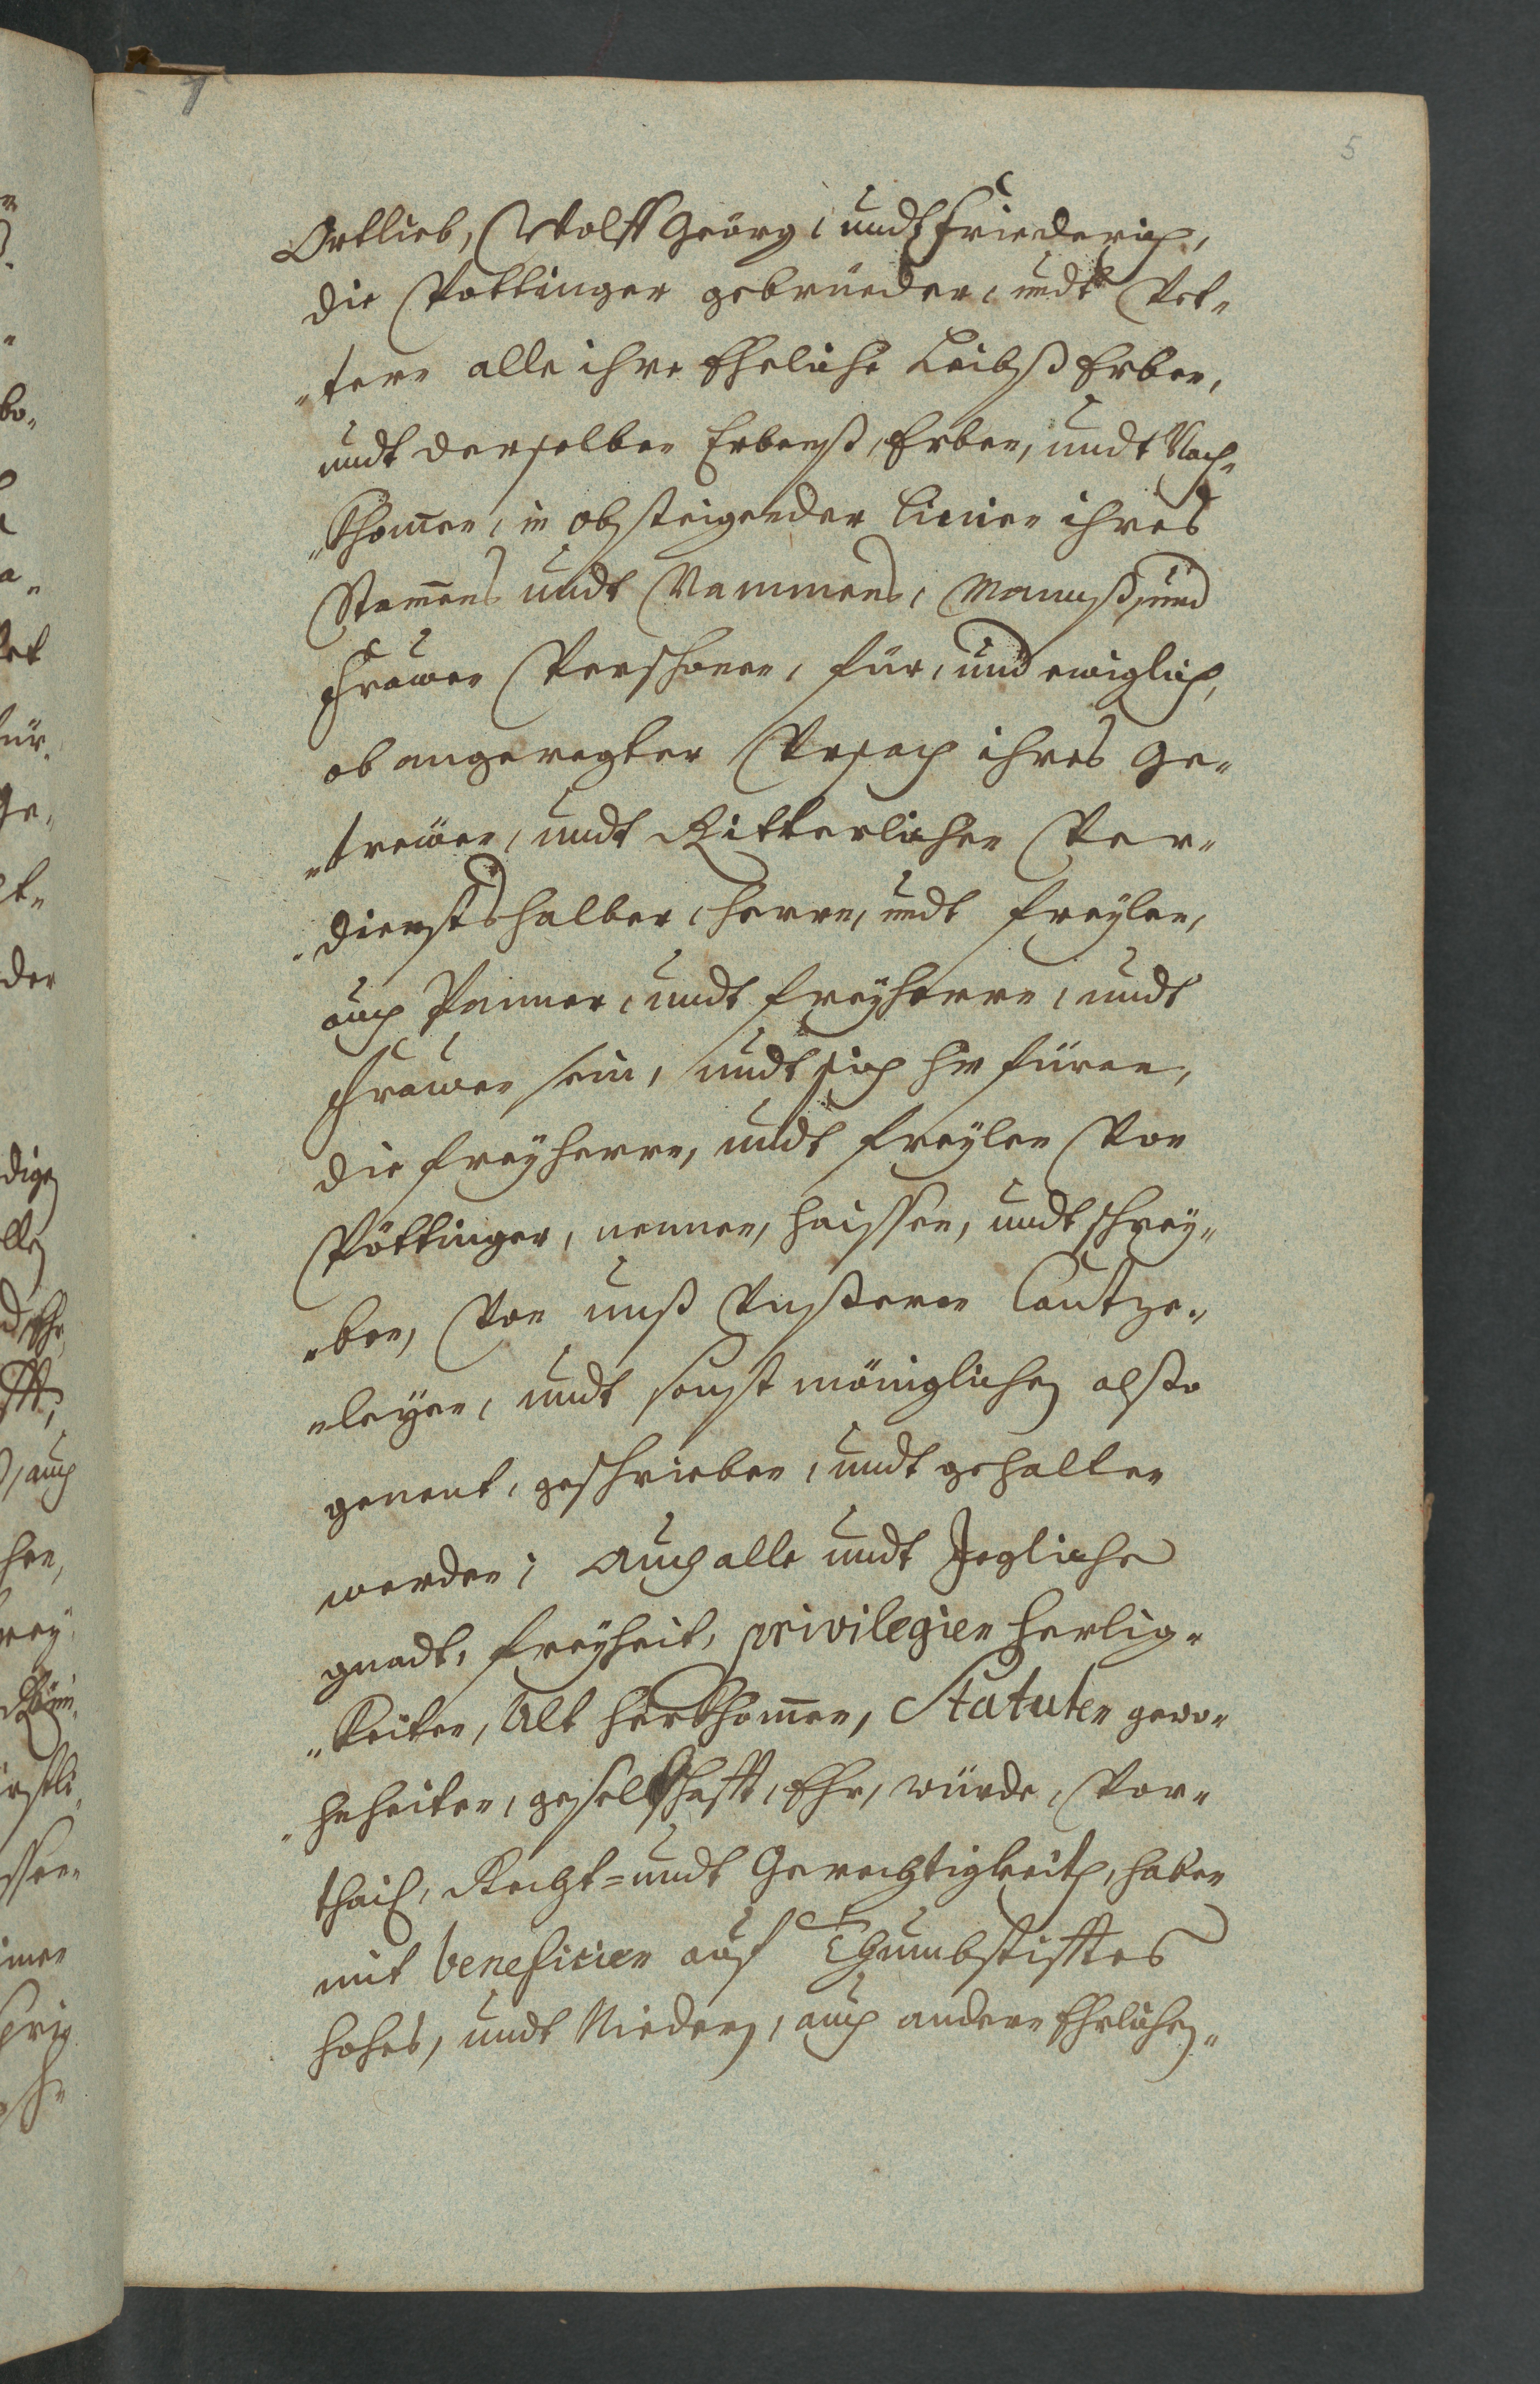 5
Ortlieb, Wolff Georg, undt Friederich,
die Pottinger gebrüeder, undt Vet„
„tern alle ihre Eheliche Leibß Erben,
undt derselben Erbenß, Erben, undt Nach„
„khom̅en, in absteigender Linien ihres
Stam̅ens undt Nammens, Mannß, und
Frawen Persohnen, für, und ewiglich,
ob angeregter Vrsach ihres Ge„
„trewen, undt Ritterlichen Ver„
„diensts halber, Herrn, undt Freylen,
auch Panner, undt Freyherrn, undt
Frawen sein, undt sich hinfüran,
die Freyherrn, undt Freylen Von
Pöttinger, nennen, haissen, undt schrey„
„ben, Von unß Vnßeren Cantze„
„leyen, undt sonst möniglichen alßo
genent, geschrieben, undt gehalten
werden; Auch alle undt Jegliche
gnadt, Freyheit, privilegien herlig„
„keiten, Alt herkhom̅en, Statuten gewo„
„hnheiten, geselschafft, Ehr, würde, Vor„
thail, Recht= undt Gerechtigkeith, haben
mit beneficien auf Thumbstifftes
hohes, undt Niedern, auch andern Ehrlichen„